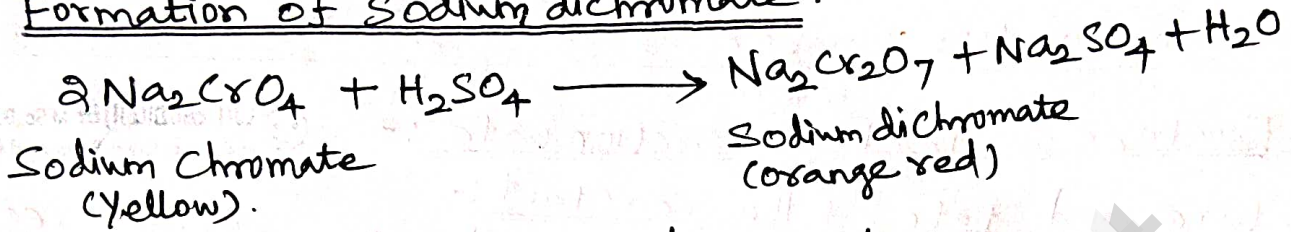 Formation of Sodium dichromate
2 Na₂CrO₄ + H₂SO₄ ⟶ Na₂Cr₂O₇ + Na₂SO₄ + H₂O
Sodium Chromate Sodium dichromate
(Yellow). (orange red)